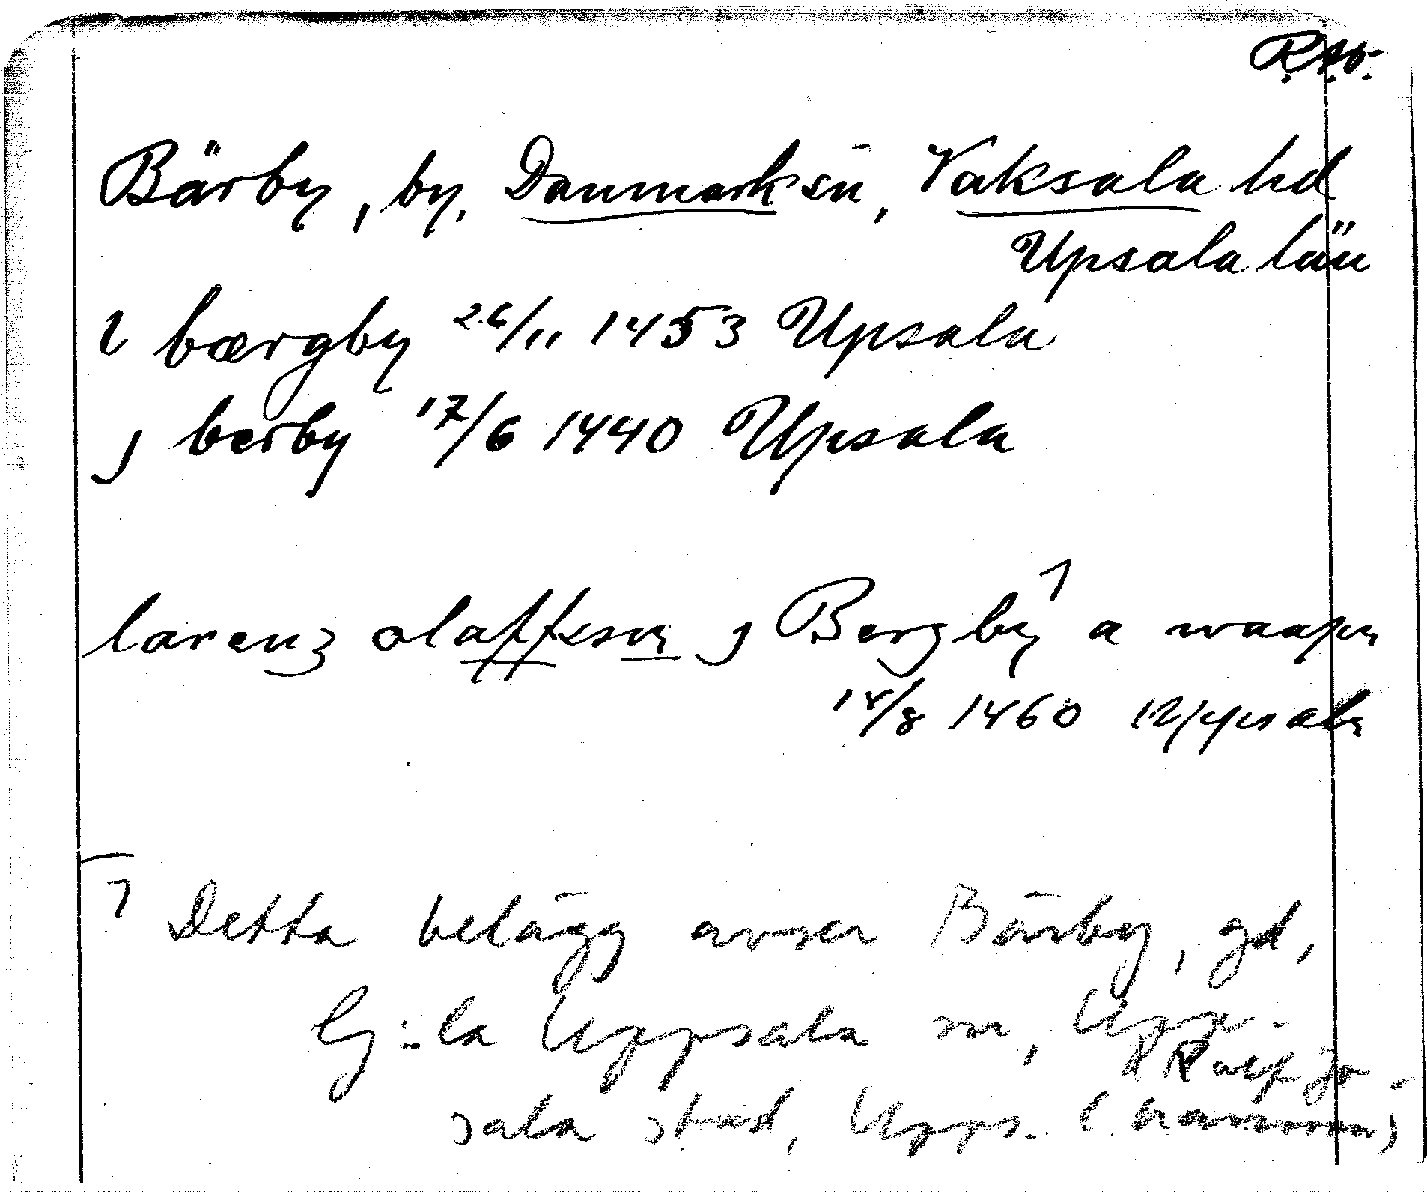 Bärby, by, Danmark sn, Vaksala hd
Upsala län
i bærgby 26/11 1453 Upsala
j bærby 17/6 1440 Upsala
larenz olaffson j Bergby 1 a waapn
14/8 1460 Uppsala
1 Detta belägg avser Bärby, gd,
G:la Uppsala sn, Upp-
sala stad, Upps. l.